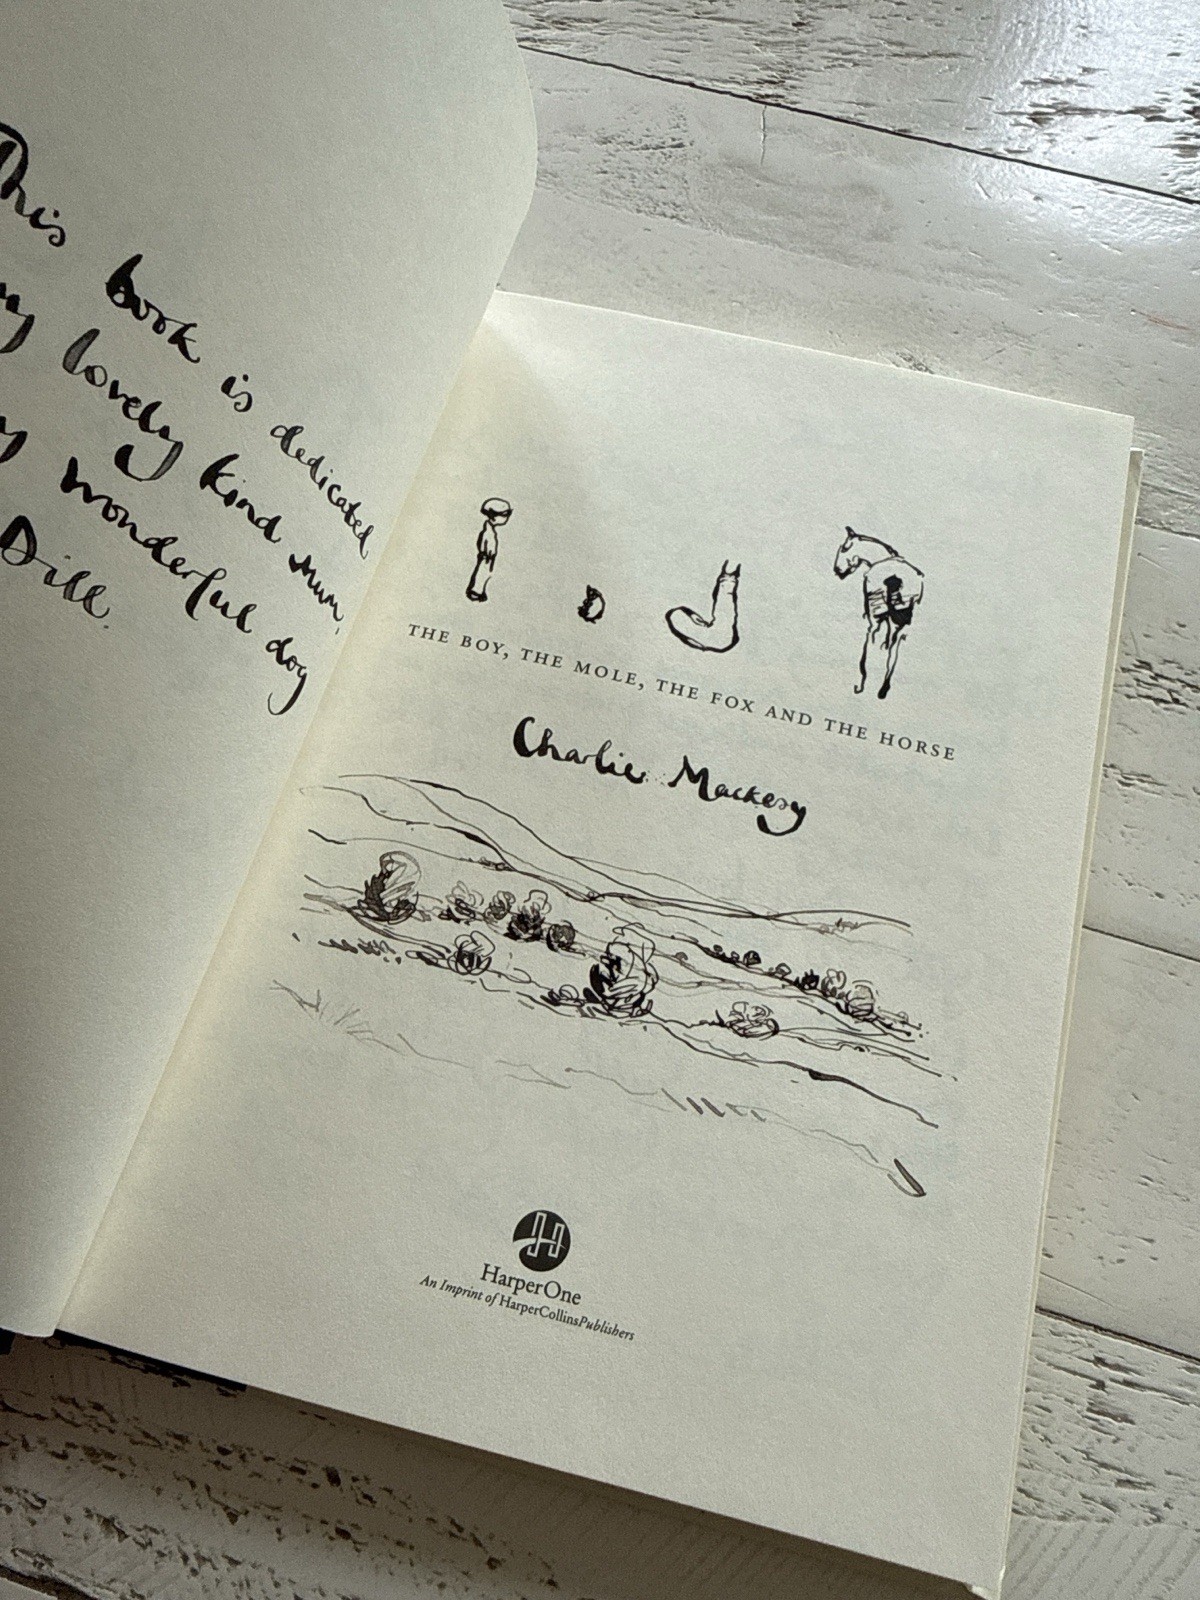 This book is dedicated
my lovely kind mum,
my wonderful dog
Dill.
THE BOY, THE MOLE, THE FOX AND THE HORSE
Charlie Mackesy
H
HarperOne
An Imprint of HarperCollinsPublishers